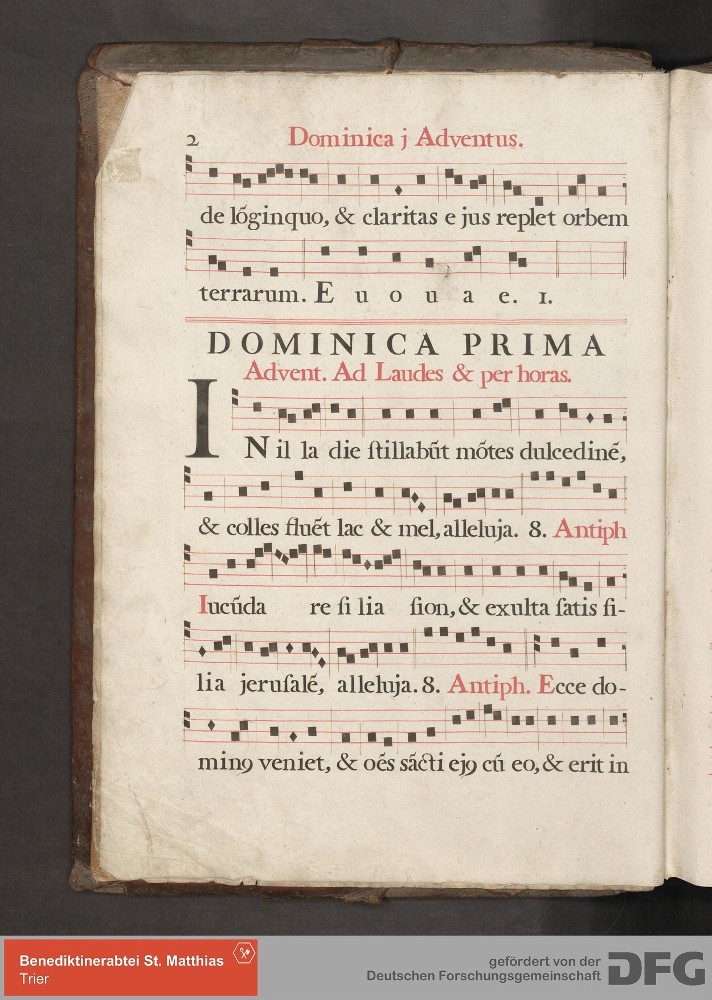 2 Dominica j Adventus.
de lõginquo, & claritas ejus replet orbem
terrarum. E u o u a e. 1.
DOMINICA PRIMA
Advent. Ad Laudes & per horas.
IN illa die ſtillabũt mõtes dulcedinẽ,
& colles fluẽt lac & mel, alleluja. 8. Antiph
Iucũda re ſi lia ſion, & exulta ſatis fi-
lia jeruſalẽ, alleluja. 8. Antiph. Ecce do-
minꝰ veniet, & oẽs sãcti ejꝰ cũ eo, & erit in
Benediktinerabtei St. Matthias
Trier
gefördert von der
Deutschen Forschungsgemeinschaft
DFG